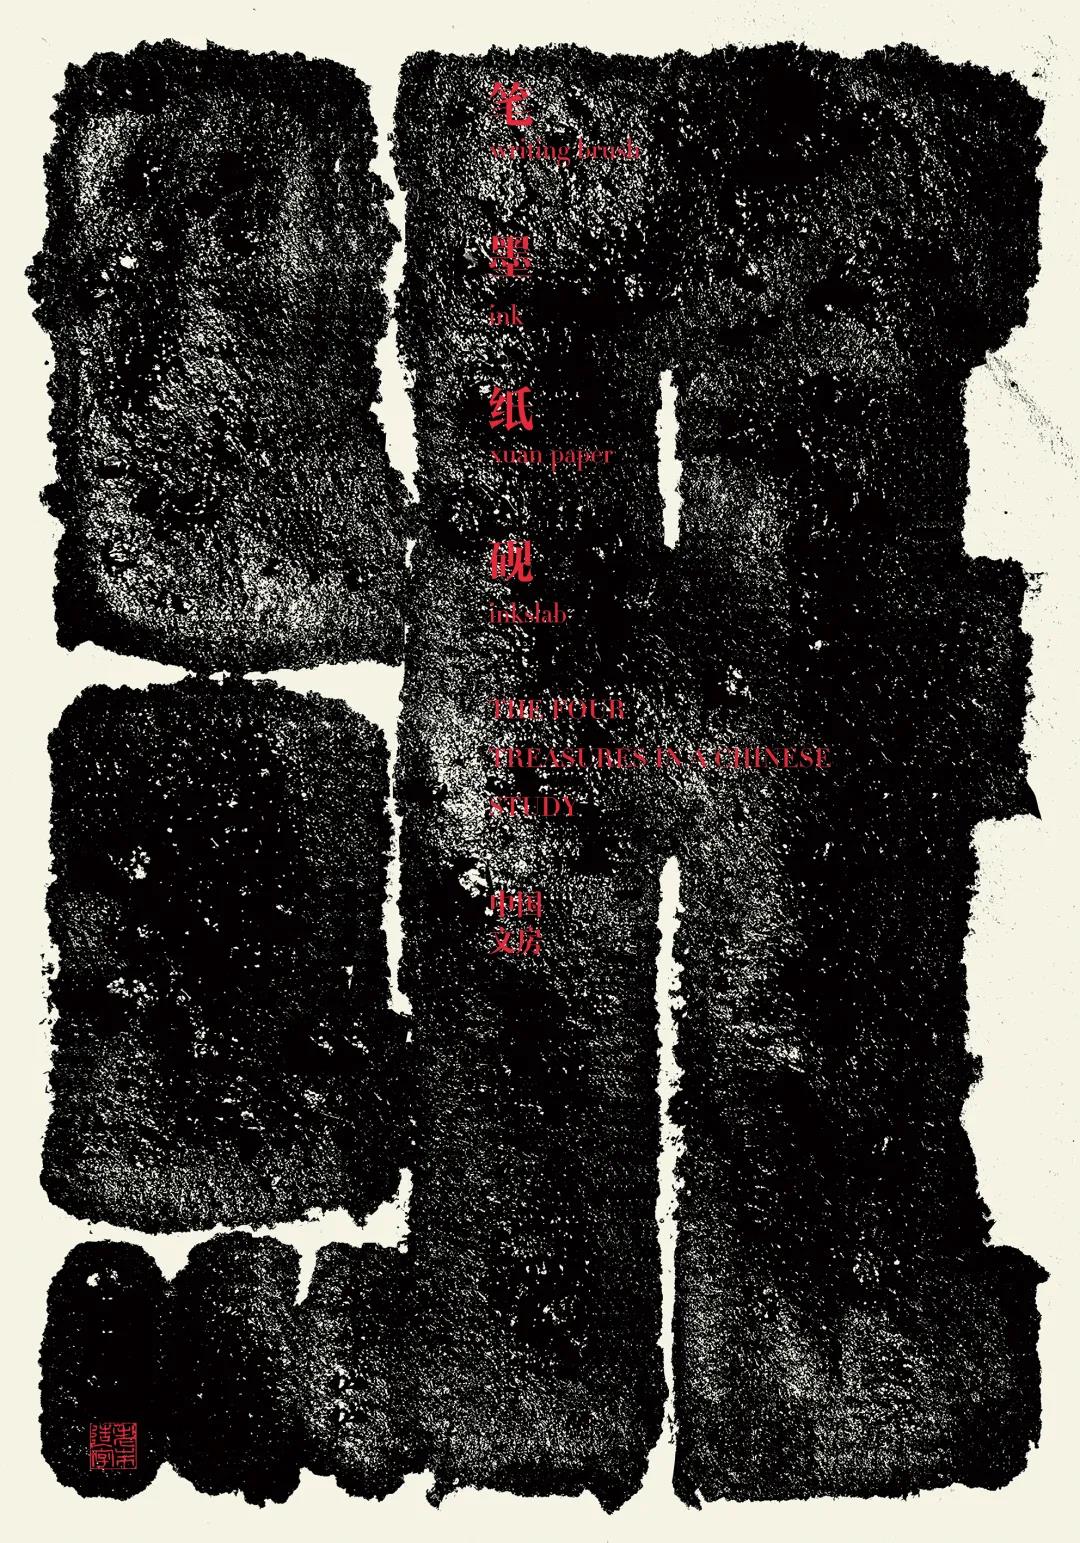 笔
writing brush
墨
ink
纸
xuan paper
砚
inkslab
THE FOUR
TREASURES IN A CHINESE
STUDY
中国
文房